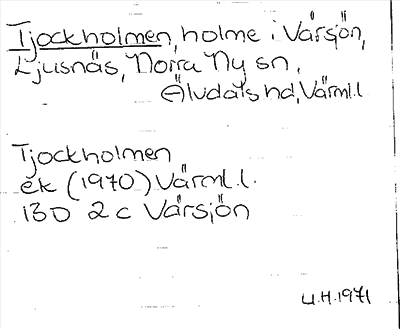 Tjockholmen, holme i Vårsjön,
Ljusnäs, Norra Ny sn,
Älvdals hd, Värml.l.
Tjockholmen
ek (1970) Värml.l.
13D 2c Vårsjön
U.H. 1971